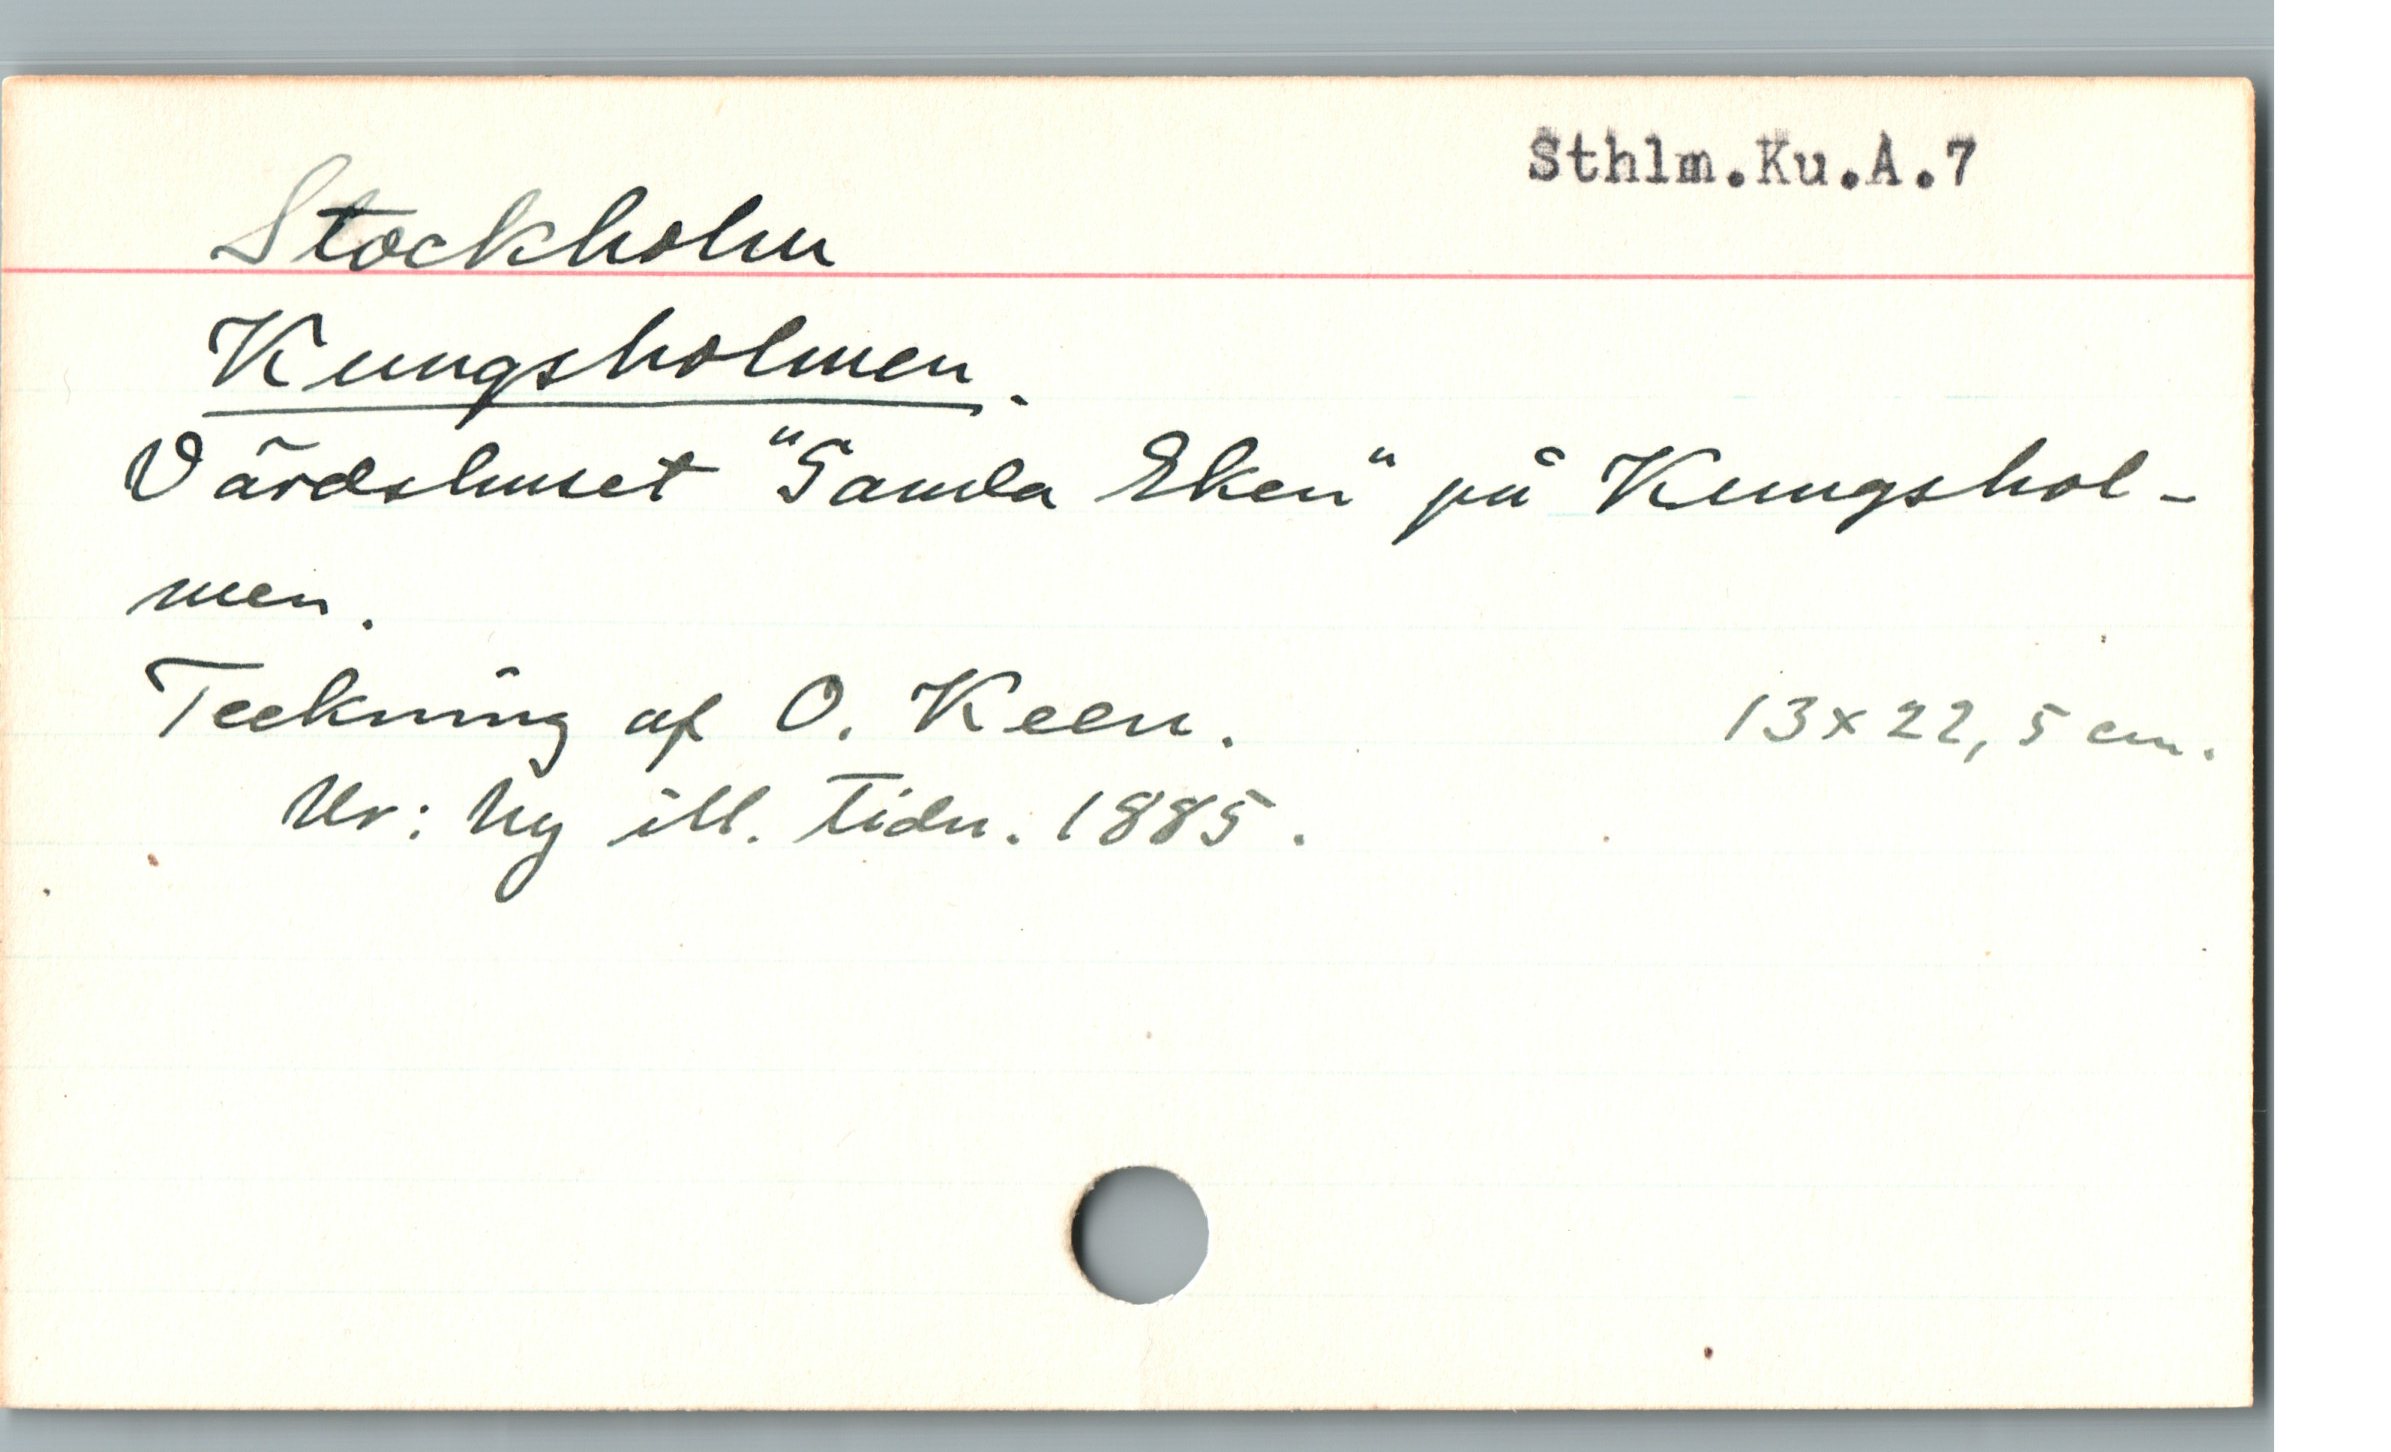 Sthlm.Ku.A.7
Stockholm
Kungsholmen.
Värdshuset "Gamla Eken" på Kungshol-
men.
Teckning af O. Keen.
13x22,5 cm.
Ur: Ny ill. Tidn. 1885.